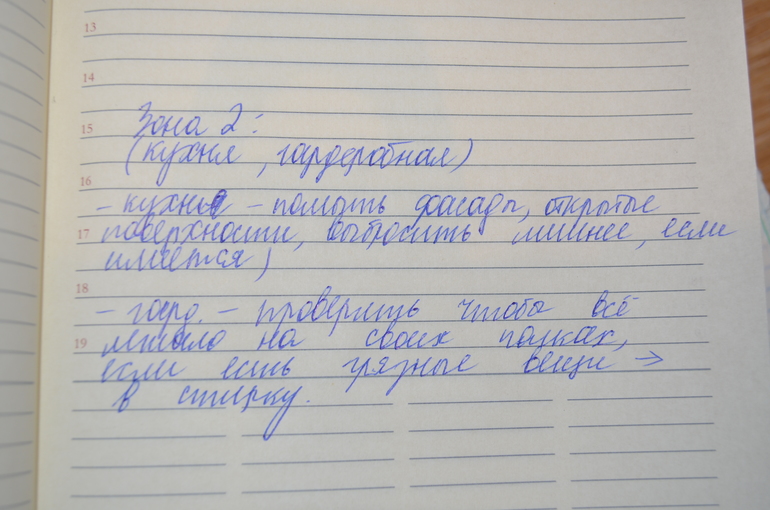 13
14
15 Зона 2:
(кухня, гардеробная)
16
- кухня - помыть фасады, открытые
17 поверхности, выбросить лишнее, если
имеется)
18
- гард. - проверить чтобы всё
19 лежало на своих полках,
если есть грязные вещи →
в стирку.